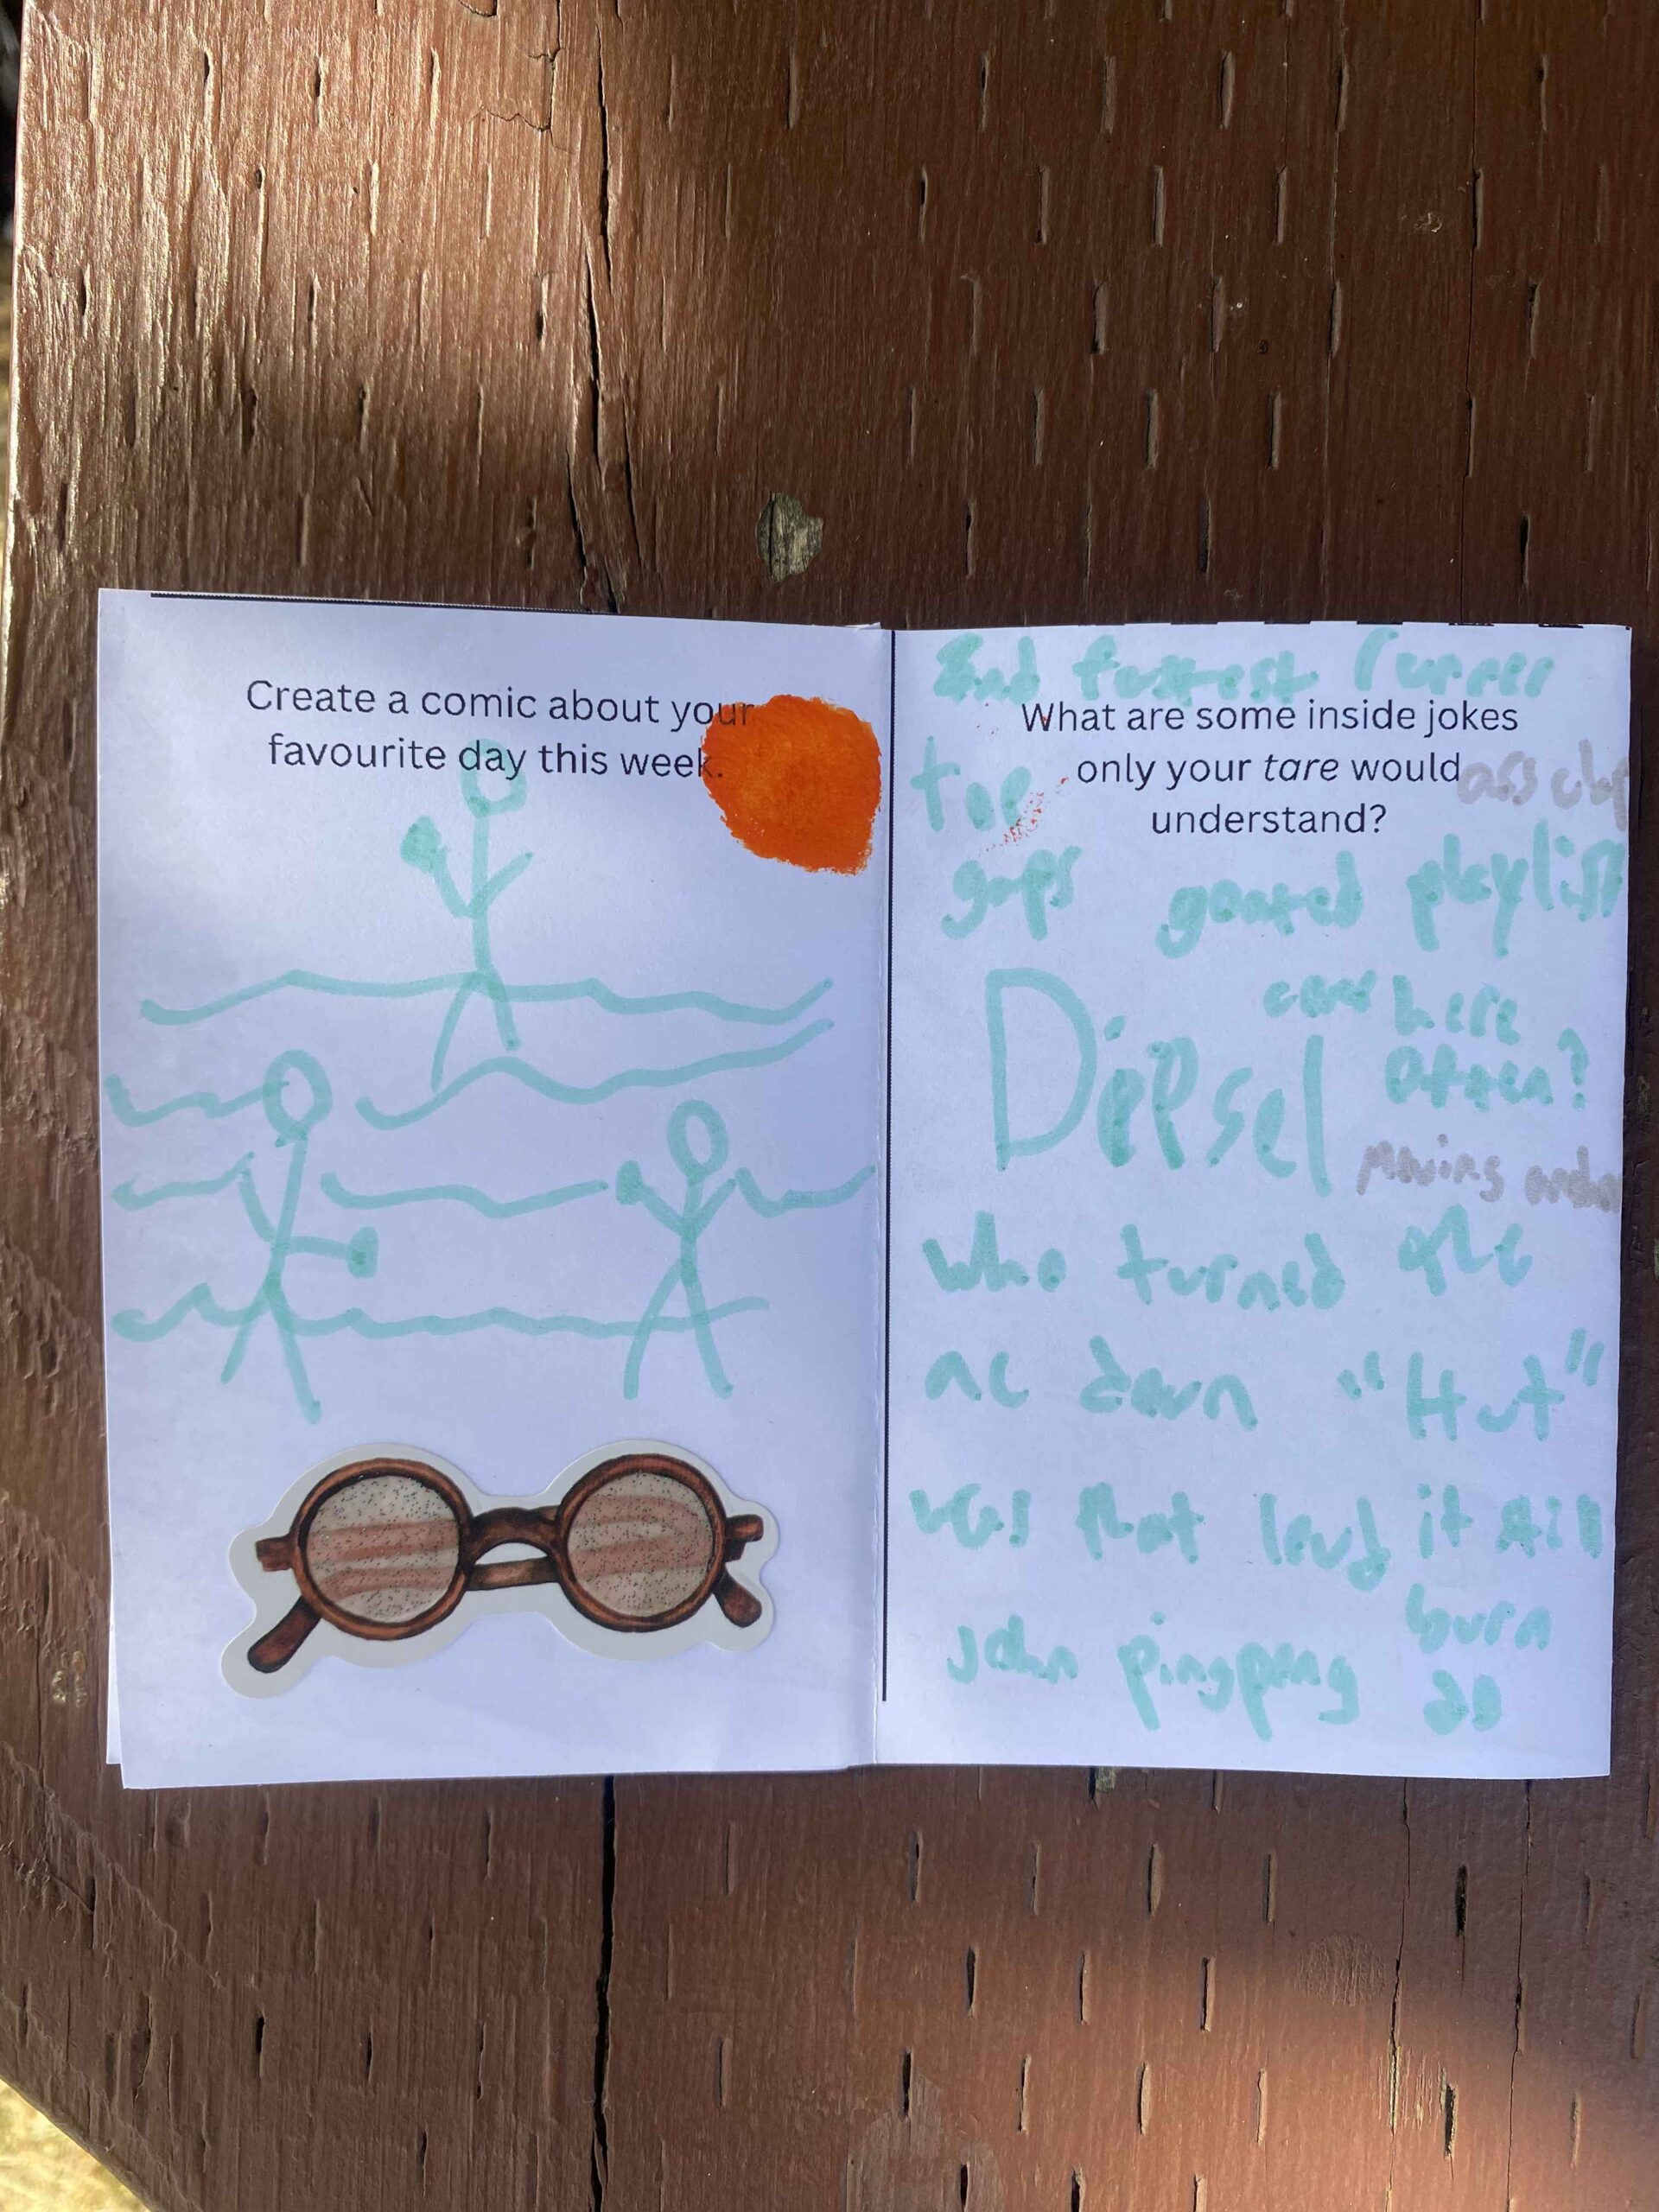 Create a comic about your
favourite day this week.
2nd fastest runner
What are some inside jokes
only your tare would
understand?
toe
gaps
goated playlist
here
often?
Diesel
Moving
who turned the
ac down "Hut"
was that loud it still
burn
john pingpong